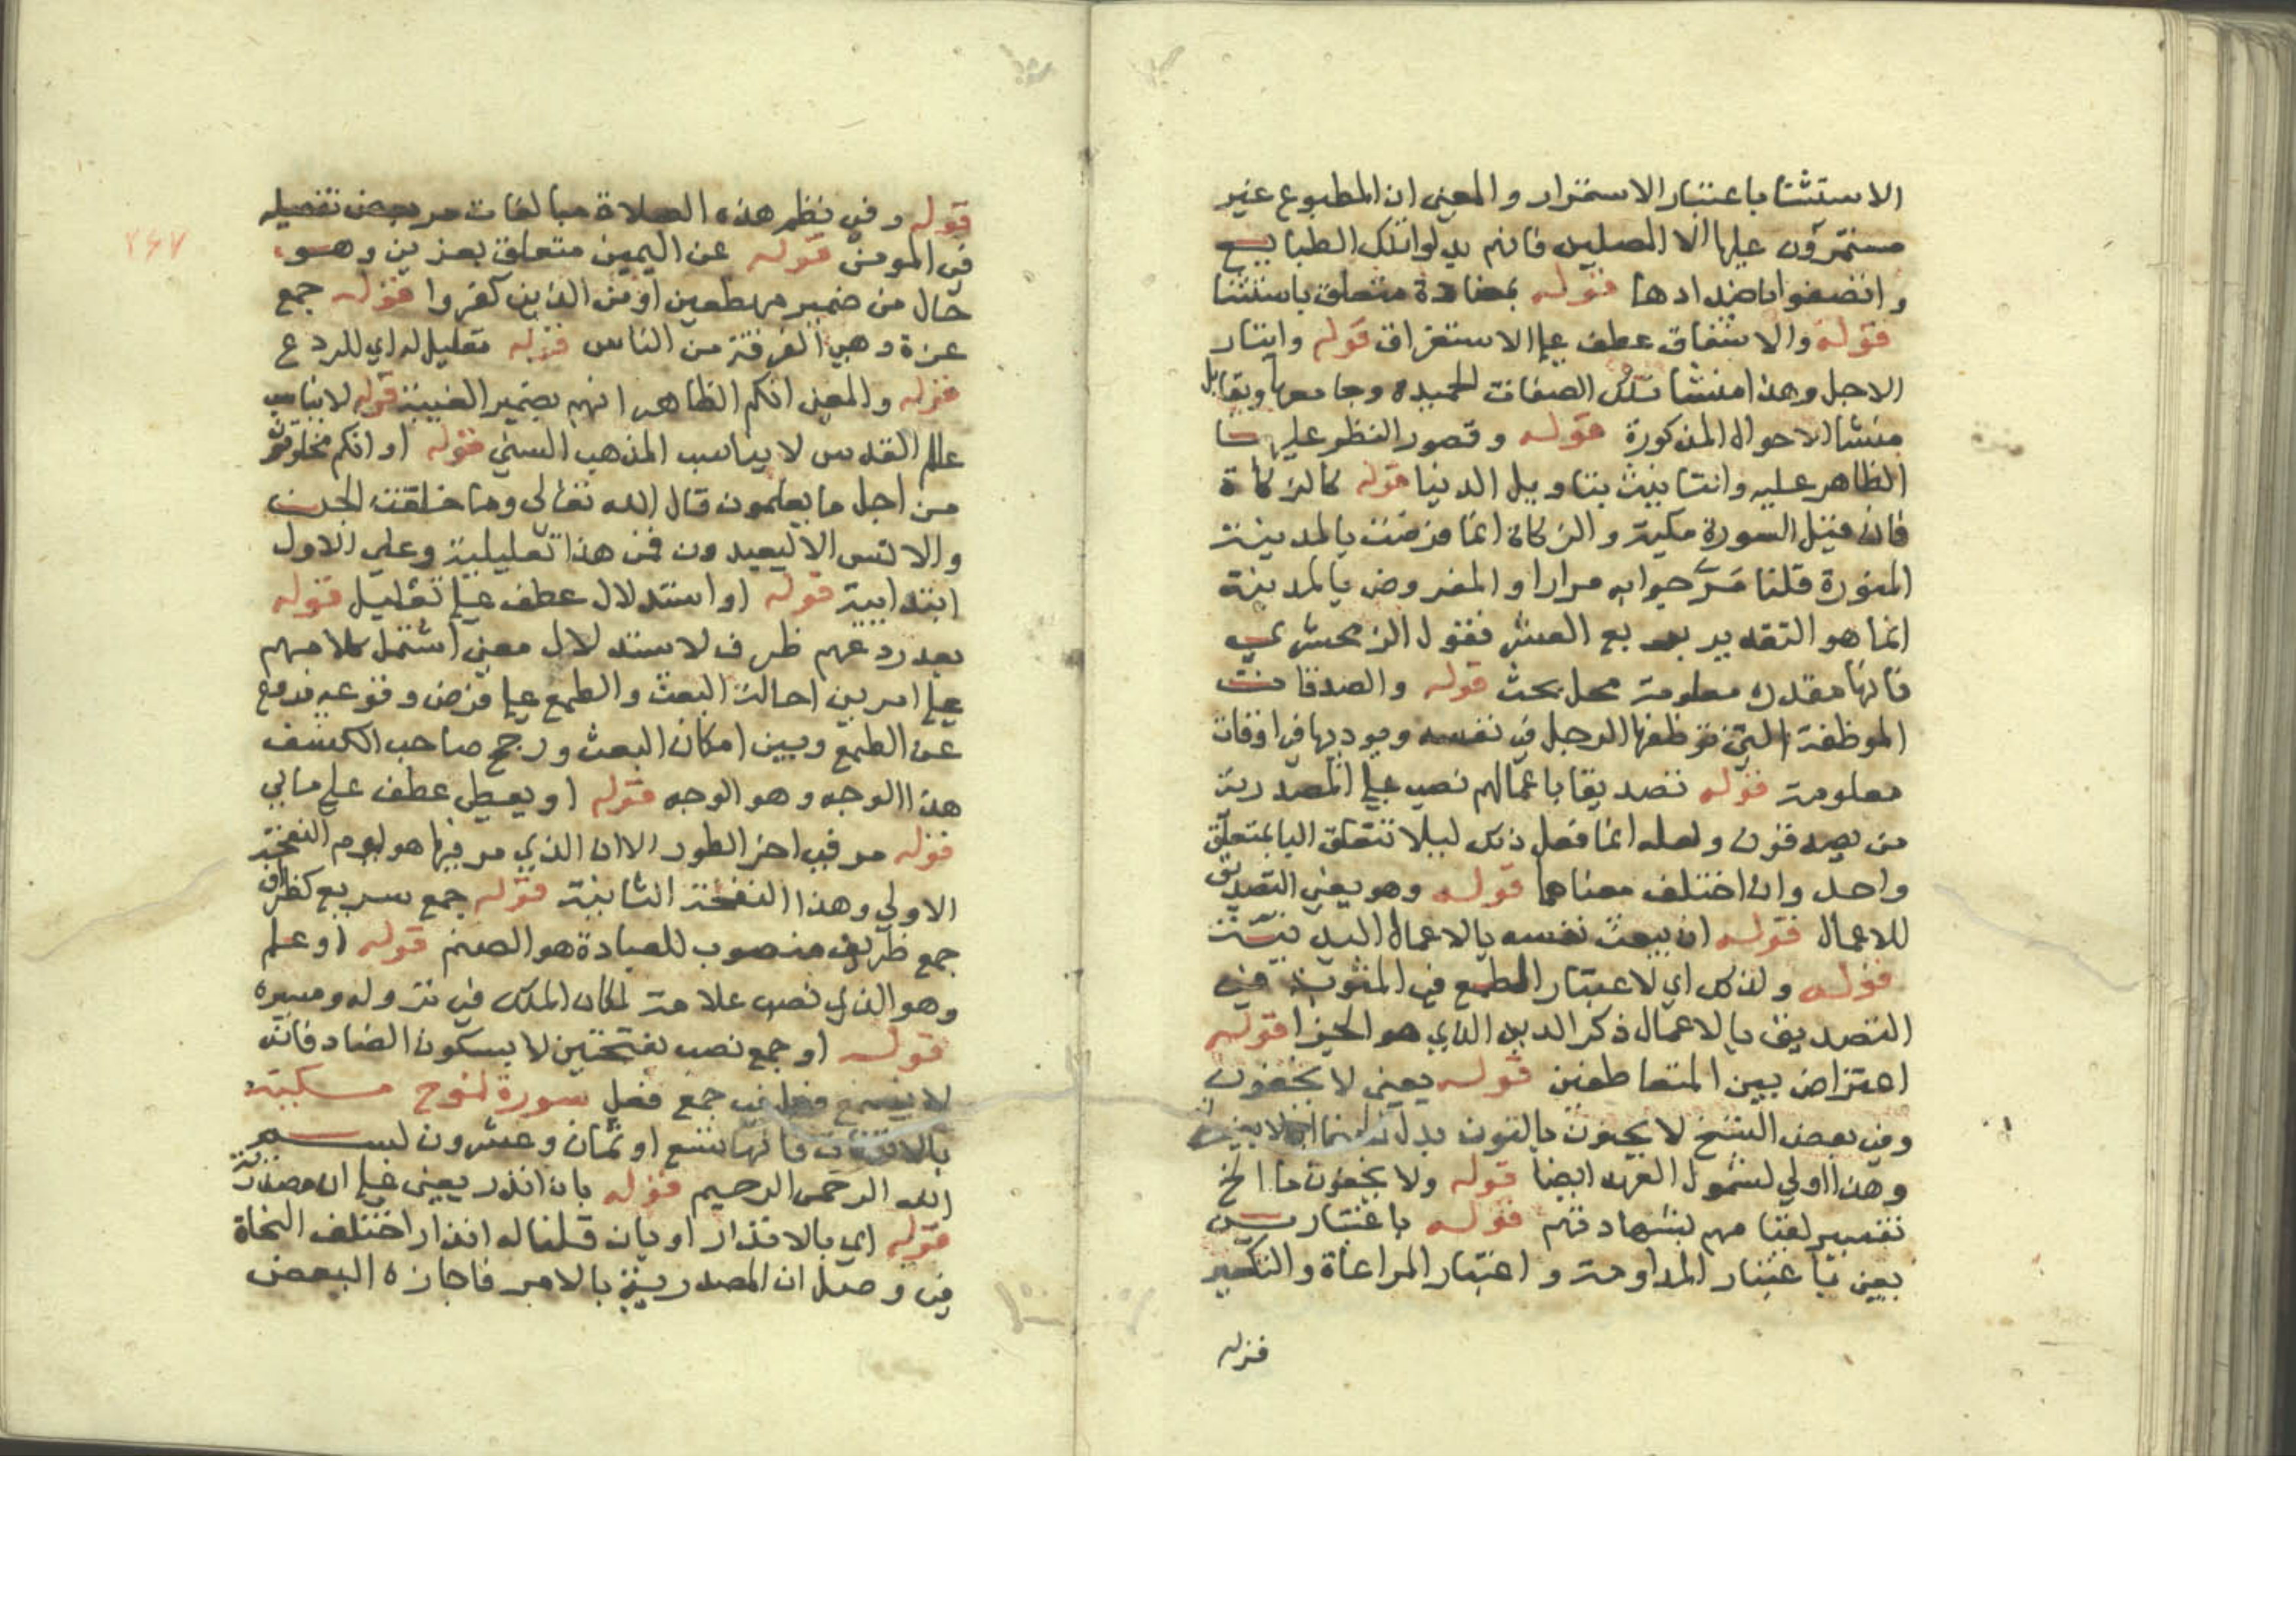 الاستثنا باعتبار الاستمرار والمعنى ان المطبوع غير
مستمرون عليها الا المصلين فانهم بدلوا تلك الطبايع
واتصفوا باضدادها قوله بمضادة متعلق باستثنا
قوله والاشفاق عطف على الاستغراق قوله وايثار
الاجل وهذا منشا تلك الصفات الحميده وجامعها ويقابل
منشا الاحوال المذكورة قوله وقصور النظر عليها
الظاهر عليه وانتا نيث بتاويل الدنيا قوله كالزكاة
فان قيل السورة مكية والزكاة انما فرضت بالمدينة
المنورة قلنا مَرَّ جوابه مرارا والمفروض بالمدينة
انما هو التقدير بربع العشر فقول الزمخشري
فانها مقدرة معلومة محل بحث قوله والصدقات
الموظفة التي توظفها الرجل في نفسه ويوديها في اوقات
معلومة قوله تصديقا باعمالهم نصب على المصدرية
من يصدقون ولعله انما فعل ذلك ليلا تتعلق البا بمتعلق
واحد وان اختلف معناهما قوله وهو يعني التصديق
للاعمال قوله ان يبعث نفسه بالاعمال البدنية
قوله ولذلك اي لاعتبار الطمع في المثوبة في
التصديق بالاعمال ذكر الدين الذي هو الجزا قوله
اعتراض بين المتعاطفين قوله يعني لا يخفون
وفي بعض النسخ لا يخفون بالنون بدل
وهذا اولى لشمول العهد ايضا قوله ولا يخفون ما الخ
تفسير لقيامهم بشهادتهم قوله باعتبارين
يعني باعتبار المداومة و اعتبار المراعاة والتكرير
قوله
قوله وفي نظم هذه الصلاة مبالغات مر بعض تفصيله
٢٤٧
في المومن قوله عن اليمين متعلق بعزين وهو
حال من ضمير مهطعين او من الذين كفروا قوله جمع
عزة وهي الفرقة من الناس قوله تعليل له اي للردع
قوله والمعنى انكم الظاهر انهم بضمير الغيبة قوله لا يناسب
عالم القدس لا يناسب المذهب السني قوله او انكم مخلوقون
من اجل ما يعلمون قال الله تعالى وما خلقت الجن
والانس الا ليعبدون فمن هذا تعليلية وعلى الاول
ابتدايية قوله او استدلال عطف على تعليل قوله
بعد ردعهم ظرف لاستدلال معنى اشتمل كلامهم
على امرين احالة البعث والطمع على فرض وقوعه فردع
عن الطمع وبين امكان البعث ورجح صاحب الكشف
هذا الوجه وهو الوجه قوله او يعطى عطف على ما بي
قوله مر في اخر الطور الا ان الذي مر فيها هو يوم النفخة
الاولى وهذا النفخة الثانية قوله جمع سريع كظراف
جمع ظريف منصوب للعبادة هو الصنم قوله او علم
وهو الذي نصب علامة لمكان الملك في نزوله ومسيره
قوله او جمع نصب بفتحتين لا بسكون الصاد فانه
لا يسمع فعل في جمع فعل سورة نوح مكية
بالاتفاق فانها تسع او ثمان وعشرون بسم
الله الرحمن الرحيم قوله بان انذر يعني على ان مصدرية
قوله اي بالانذار او بان قلنا له انذار اختلف النحاة
في وصل ان المصدرية بالامر فاجازه البعض